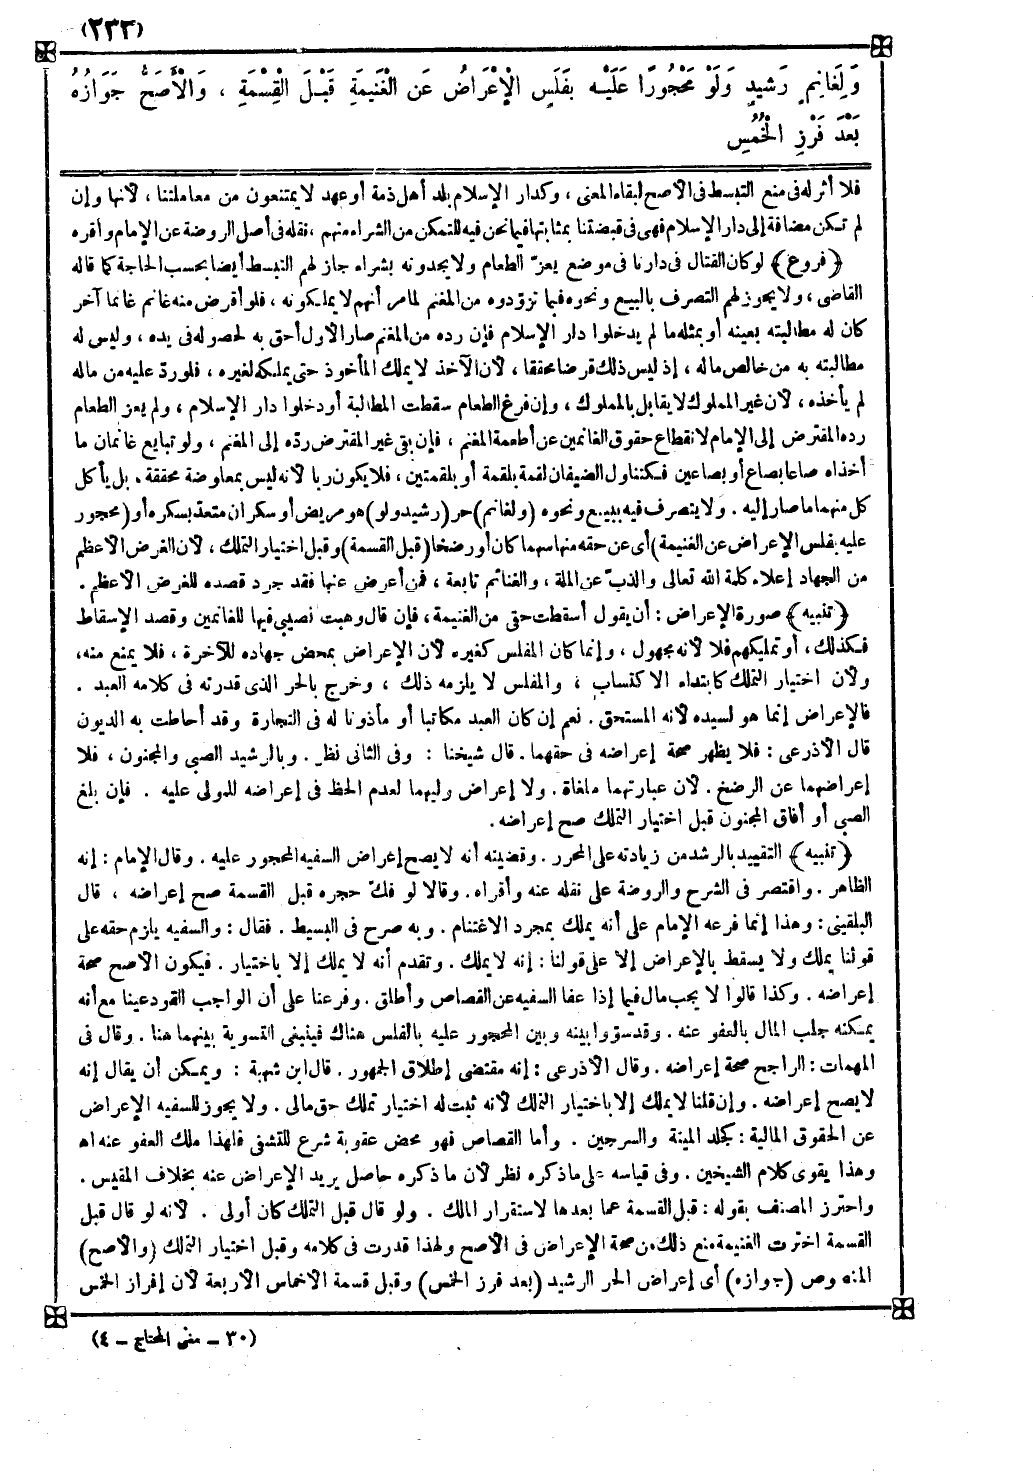 (٢٣٣)
وَلِغَانِمٍ رَشِيدٍ وَلَوْ مَحْجُورًا عَلَيْهِ بِفَلَسٍ الْإِعْرَاضُ عَنِ الْغَنِيمَةِ قَبْلَ الْقِسْمَةِ ، وَالْأَصَحُّ جَوَازُهُ
بَعْدَ فَرْزِ الْخُمُسِ
فلا أثر له فى منع التبسط فى الأصح لبقاء المعنى ، وكدار الإسلام بلد أهل ذمة أو عهد لا يمتنعون من معاملتنا ، لأنها وإن
لم تكن مضافة إلى دار الإسلام فهى فى قبضتنا بمثابتها فيما نحن فيه للتمكن من الشراء منهم ، نقله فى أصل الروضة عن الإمام وأقره
(فروع) لو كان القتال فى دارنا فى موضع يعزّ الطعام ولا يجدونه بشراء جاز لهم التبسط أيضا بحسب الحاجة كما قاله
القاضى ، ولا يجوز لهم التصرف بالبيع ونحوه فيما تزوّدوه من المغنم لما مر أنهم لا يملكونه ، فلو أقرض منه غانم غانما آخر
كان له مطالبته بعينه أو بمثله ما لم يدخلوا دار الإسلام فإن رده من المغنم صار الأول أحق به لحصوله فى يده ، وليس له
مطالبته به من خالص ماله ، إذ ليس ذلك قرضا محققا ، لأن الآخذ لا يملك المأخوذ حتى يملكه لغيره ، فلو ردّ عليه من ماله
لم يأخذه ، لأن غير المملوك لا يقابل بالمملوك ، وإن فرغ الطعام سقطت المطالبة أو دخلوا دار الإسلام ، ولم يعز الطعام
رده المقترض إلى الإمام لانقطاع حقوق الغانمين عن أطعمة المغنم ، فإن بقى غير المقترض ردّه إلى المغنم ، ولو تبايع غانمان ما
أخذاه صاعا بصاع أو بصاعين فكتناول الضيفان لقمة بلقمة أو بلقمتين ، فلا يكون ربا لأنه ليس بمعاوضة محققة . بل يأكل
كل منهما ما صار إليه . ولا يتصرف فيه ببيع ونحوه (ولغانم) حر (رشيد ولو) هو مريض أو سكران متعد بسكره أو (محجور
عليه بفلس الإعراض عن الغنيمة) أى عن حقه منها سهما كان أو رضخا (قبل القسمة) وقبل اختيار التملك ، لأن الغرض الأعظم
من الجهاد إعلاء كلمة الله تعالى والذبّ عن الملة ، والغنائم تابعة ، فمن أعرض عنها فقد جرد قصده للغرض الأعظم .
(تنبيه) صورة الإعراض : أن يقول أسقطت حقى من الغنيمة ، فإن قال وهبت نصيبى فيها للغانمين وقصد الإسقاط
فكذلك ، أو تمليكهم فلا لأنه مجهول ، وإنما كان المفلس كغيره لأن الإعراض بمحض جهاده للآخرة ، فلا يمنع منه ،
ولأن اختيار التملك كابتداء الاكتساب ، والمفلس لا يلزمه ذلك ، وخرج بالحر الذى قدرته فى كلامه العبد .
فالإعراض إنما هو لسيده لأنه المستحق . نعم إن كان العبد مكاتبا أو مأذونا له فى التجارة وقد أحاطت به الديون
قال الأذرعى : فلا يظهر صحة إعراضه فى حقهما . قال شيخنا : وفى الثانى نظر . وبالرشيد الصبى والمجنون ، فلا
إعراضهما عن الرضخ . لأن عبارتهما ملغاة . ولا إعراض وليهما لعدم الحظ فى إعراضه للمولى عليه . فإن بلغ
الصبى أو أفاق المجنون قبل اختيار التملك صح إعراضه .
(تنبيه) التقييد بالرشد من زيادته على المحرر . وقضيته أنه لا يصح إعراض السفيه المحجور عليه . وقال الإمام : إنه
الظاهر . واقتصر فى الشرح والروضة على نقله عنه وأقراه . وقالا لو فك حجره قبل القسمة صح إعراضه ، قال
البلقينى : وهذا إنما فرعه الإمام على أنه يملك بمجرد الاغتنام . وبه صرح فى البسيط . فقال : والسفيه يلزم حقه على
قولنا يملك ولا يسقط بالإعراض إلا على قولنا : إنه لا يملك . وتقدم أنه لا يملك إلا باختيار . فيكون الأصح صحة
إعراضه . وكذا قالوا لا يجب مال فيما إذا عفا السفيه عن القصاص وأطلق . وفرعنا على أن الواجب القود عينا مع أنه
يمكنه جلب المال بالعفو عنه . وقد سوّوا بينه وبين المحجور عليه بالفلس هناك فينبغى التسوية بينهما هنا . وقال فى
المهمات : الراجح صحة إعراضه . وقال الأذرعى : إنه مقتضى إطلاق الجمهور . قال ابن شهبة : ويمكن أن يقال إنه
لا يصح إعراضه . وإن قلنا لا يملك إلا باختيار التملك لأنه ثبت له اختيار تملك حق مالى . ولا يجوز للسفيه الإعراض
عن الحقوق المالية : كجلد الميتة والسرجين . وأما القصاص فهو محض عقوبة شرع للتشفى فلهذا ملك العفو عنه اه
وهذا يقوى كلام الشيخين . وفى قياسه على ما ذكره نظر لأن ما ذكره حاصل يريد الإعراض عنه بخلاف المقيس .
واحترز المصنف بقوله : قبل القسمة عما بعدها لاستقرار الملك . ولو قال قبل التملك كان أولى . لأنه لو قال قبل
القسمة اخترت الغنيمة منع ذلك من صحة الإعراض فى الأصح ولهذا قدرت فى كلامه وقبل اختيار التملك (والأصح)
المنصوص (جوازه) أى إعراض الحر الرشيد (بعد فرز الخمس) وقبل قسمة الأخماس الأربعة لأن إفراز الخمس
(٣٠ - مغنى المحتاج - ٤)